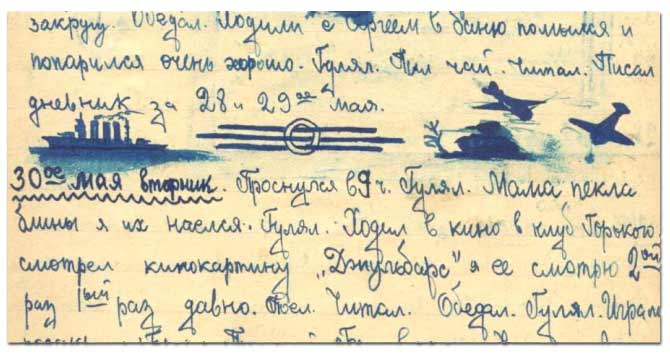 закруту. Обедал. Ходили с Сергеем в баню помылся и
попарился очень хорошо. Гулял. Пил чай. Читал. Писал
дневник за 28 и 29ое мая.
30ое мая вторник. Проснулся в 9 ч. Гулял. Мама пекла
блины я их наелся. Гулял. Ходил в кино в клуб Горького
смотрел кинокартину „Джульбарс" я ее смотрю 2ой
раз 1ый раз давно. Поел. Читал. Обедал. Гулял.